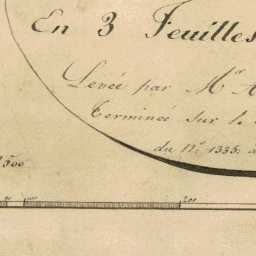 En 3 Feuilles
Levée par Mr. A
Terminée sur le
du No. 1335. à
500
100 200